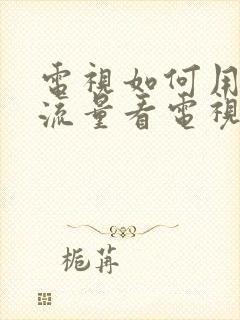 電視如何用
流量看電視
栀苒